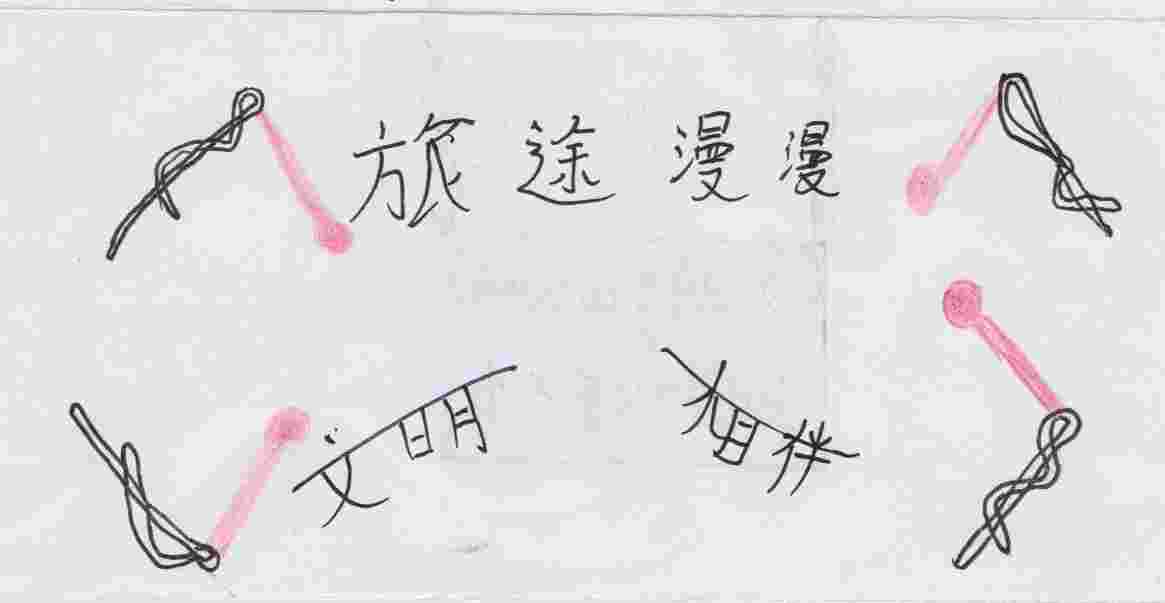 旅途漫漫
文明相伴